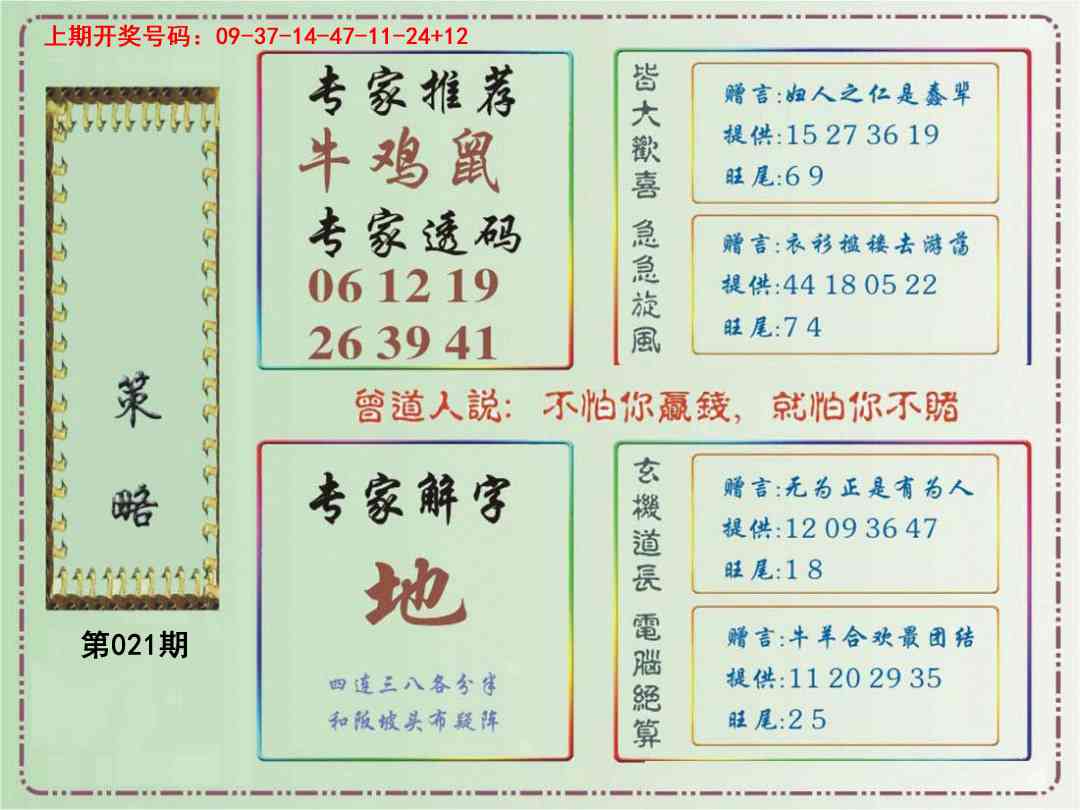 上期开奖号码：09-37-14-47-11-24+12
策
略
第021期
专家推荐
牛鸡鼠
专家透码
06 12 19
26 39 41
皆大歡喜
赠言:妇人之仁是蠢辈
提供:15 27 36 19
旺尾:6 9
急急旋風
赠言:衣衫褴褛去游荡
提供:44 18 05 22
旺尾:7 4
曾道人説：不怕你贏錢，就怕你不賭
专家解字
地
四连三八各分半
和阪坡头布疑阵
玄機道長
赠言:无为正是有为人
提供:12 09 36 47
旺尾:1 8
電腦絕算
赠言:牛羊合欢最团结
提供:11 20 29 35
旺尾:2 5